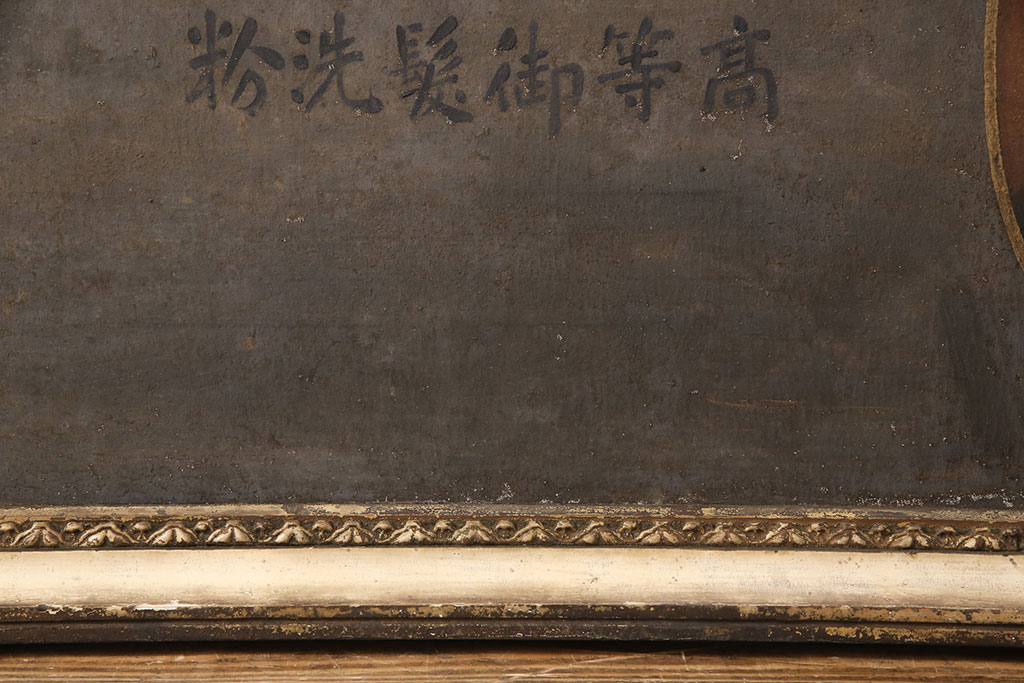 高等御髮洗粉